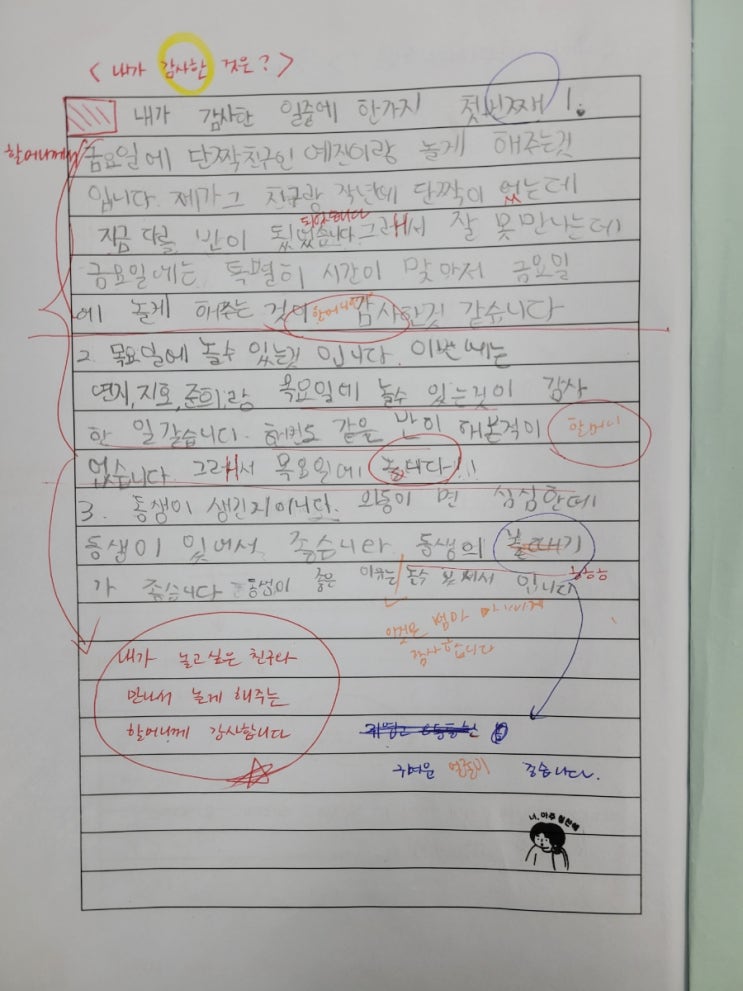 < 내가 감사한 것은? >
내가 감사한 일중에 한가지 첫번째!
할머니께서
금요일에 단짝친구인 예진이랑 놀게 해주는것
입니다. 제가 그 친구랑 작년에 단짝이 었는데
되었습니다
지금 다른 반이 됬었습니다 그래서 잘 못만나는데
금요일에는 특별히 시간이 맞아저 금요일
에 놀게 해주는 것이 감사한것 같습니다
2. 목요일에 놀수 있는것 입니다. 이번에는
연지, 지호, 준희,랑 목요일에 놀수 있는것이 감사
한 일 같습니다. 한번도 같은 반이 해본적이 할머니
없습니다. 그래서 목요일에 놉니다!!!
3. 동생이 생긴지이니다. 외동이 면 심심한데
동생이 있어서 좋습니다. 동생의
가 좋습니다 동생이 좋은 이유는 입니다
감사합니다
내가 놀고싶은 친구와
만나서 놀게 해주는
할머니께 감사합니다
귀여운 엉덩이 좋습니다.
너, 아주 칭찬해